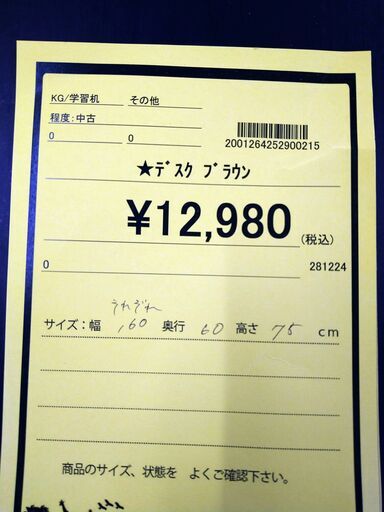 KG/学習机 その他
程度:中古
0 0
2001264252900215
★ﾃﾞｽｸ ﾌﾞﾗｳﾝ
¥12,980 (税込)
0 281224
それぞれ
サイズ:幅 160 奥行 60 高さ 75 cm
商品のサイズ、状態を よくご確認下さい。